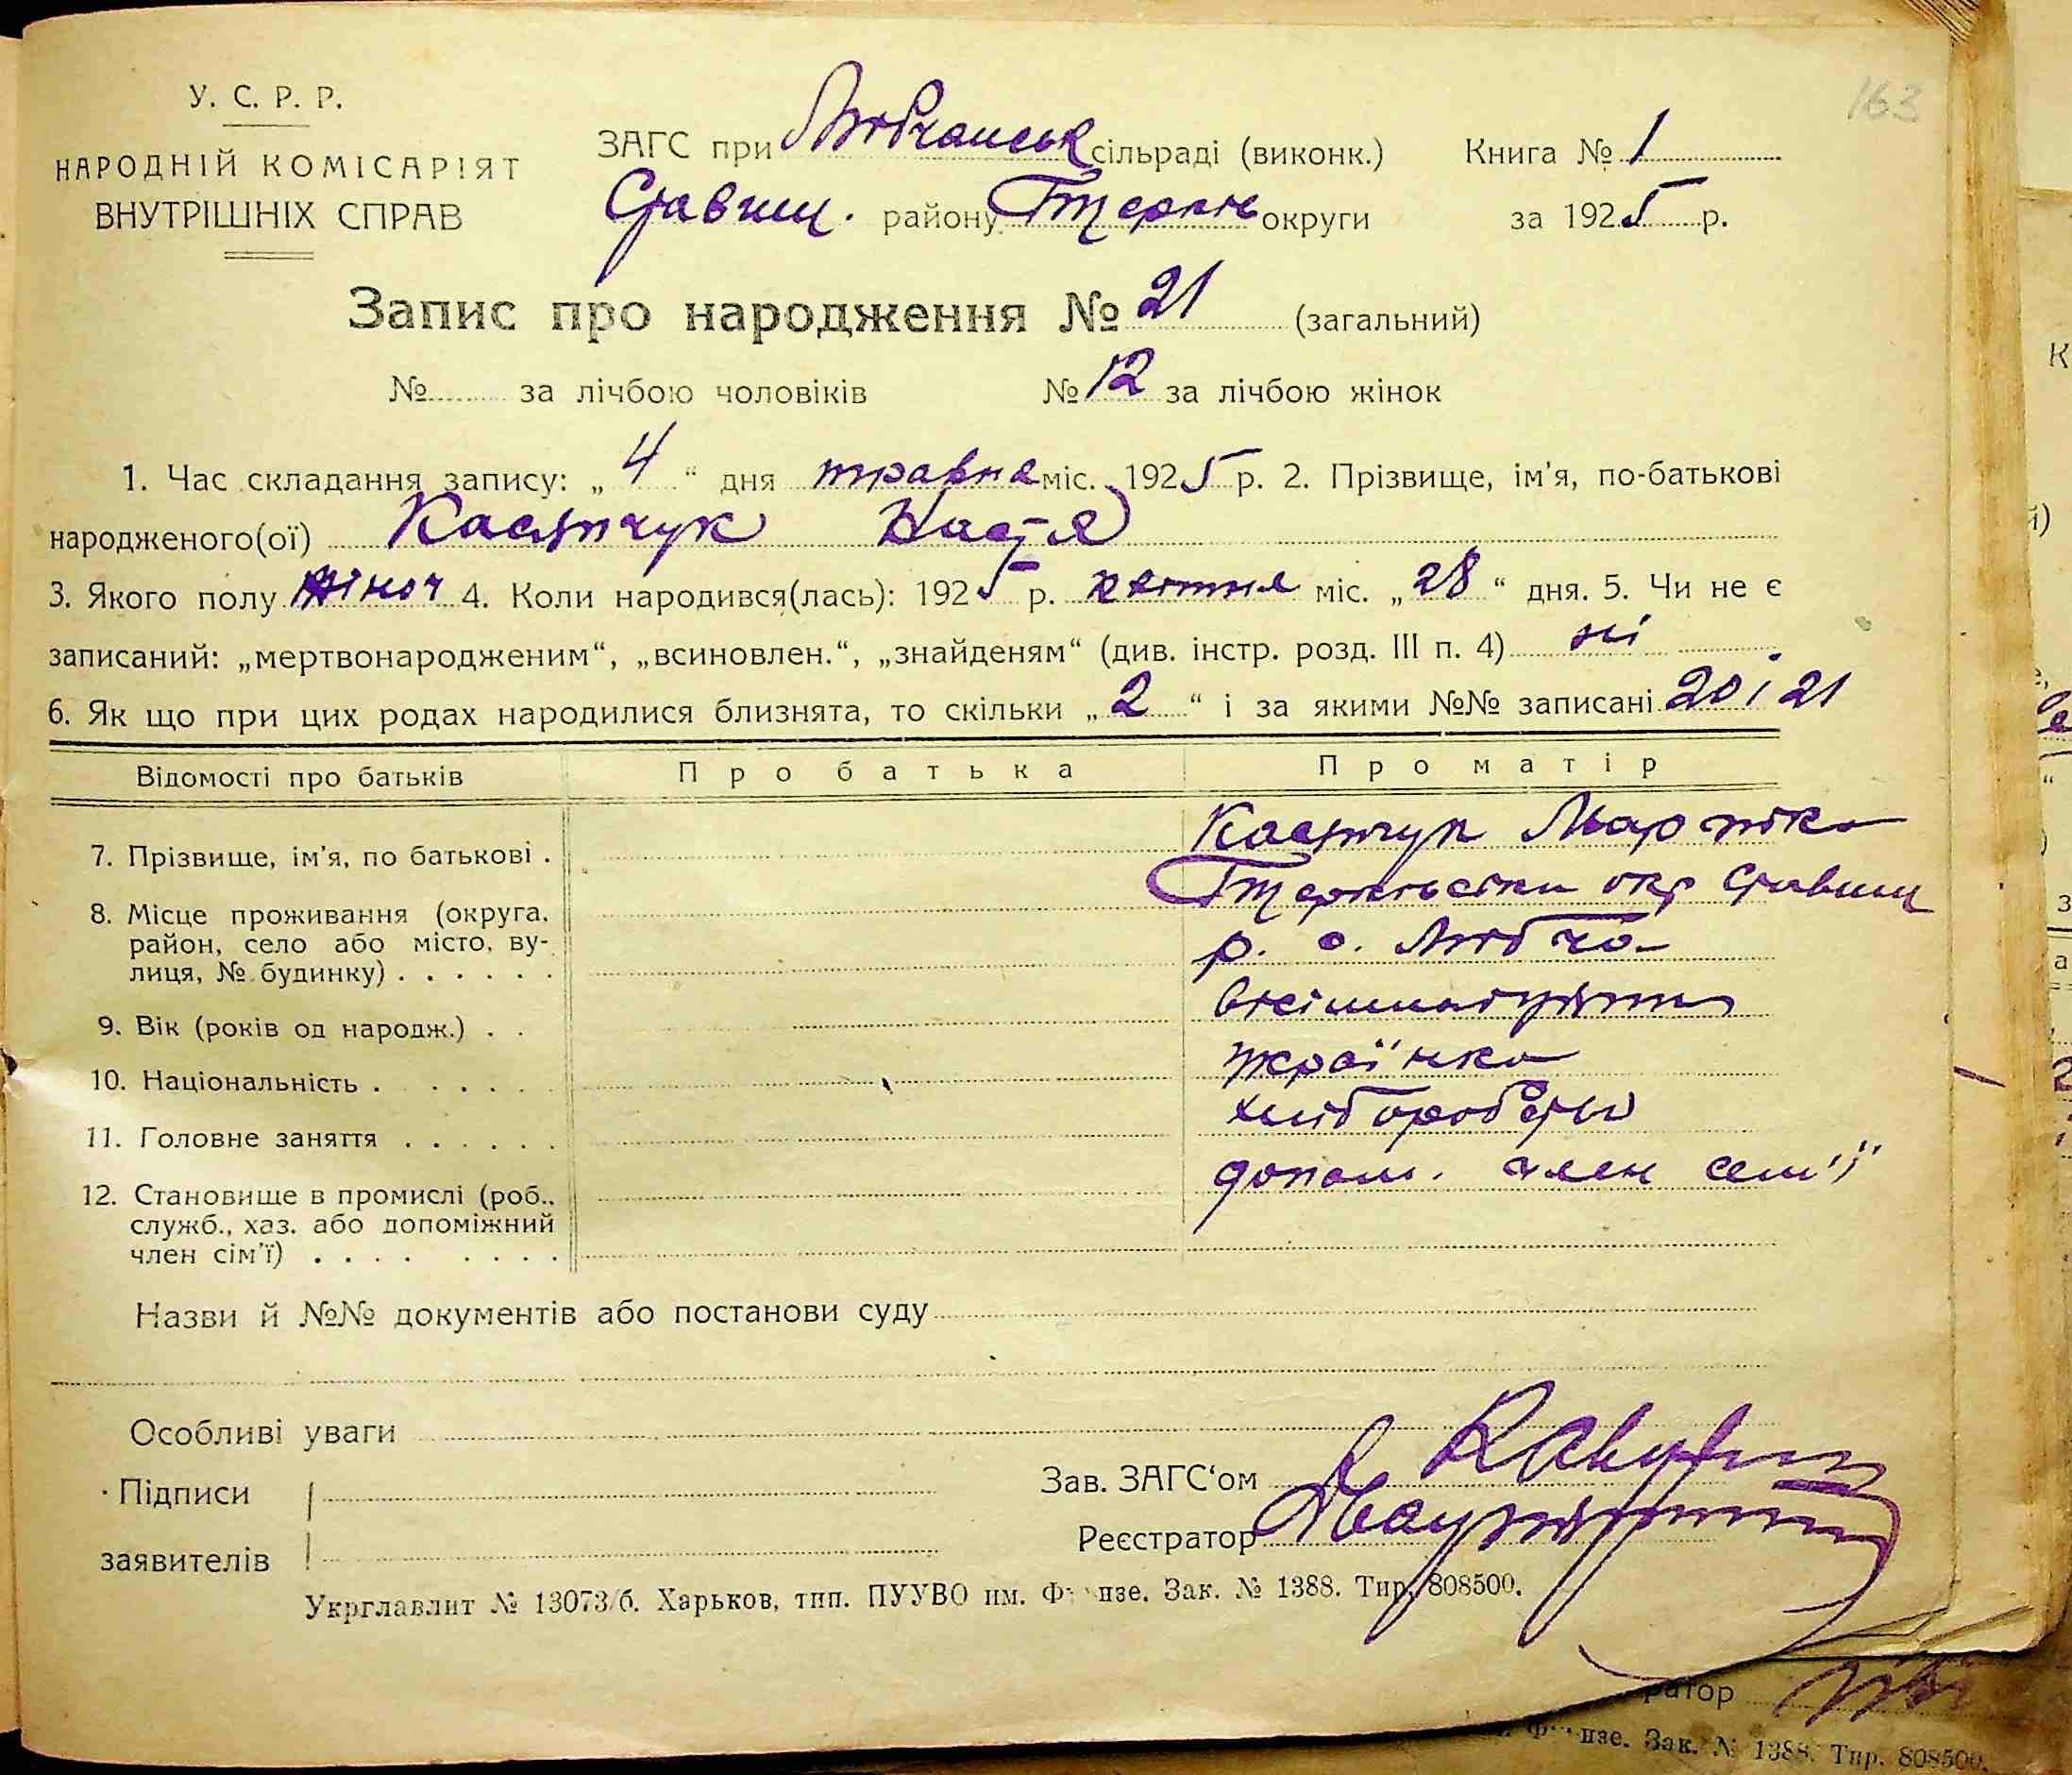 163
У. С. Р. Р.
НАРОДНІЙ КОМІСАРІЯТ
ВНУТРІШНІХ СПРАВ
ЗАГС при Любчанськ сільраді (виконк.) Книга № 1
Ставищ. району округи за 1925 р.
Запис про народження № 21 (загальний)
№ за лічбою чоловіків № 12 за лічбою жінок
1. Час складання запису: „ 4 “ дня травня міс. 1925 р. 2. Прізвище, ім'я, по-батькові
народженого(ої) Касянчук Настя
3. Якого полу жіноч 4. Коли народився(лась): 1925 р. квітня міс. „ 28 “ дня. 5. Чи не є
записаний: „мертвонародженим“, „всиновлен.“, „знайденям“ (див. інстр. розд. III п. 4) ні
6. Як що при цих родах народилися близнята, то скільки „ 2 “ і за якими №№ записані 20 і 21
Відомості про батьків Про батька Про матір
7. Прізвище, ім'я, по батькові .
8. Місце проживання (округа, окр Ставищ
район, село або місто, ву- р. с. Любча
лиця, № будинку) . . . . . .
9. Вік (років од народж.) . .
10. Національність . . . . . . українка
11. Головне заняття . . . . . . хліборобство
12. Становище в промислі (роб., допом. член сем'ї
служб., хаз. або допоміжний
член сім'ї) . . . . . . . .
Назви й №№ документів або постанови суду
Особливі уваги
Підписи Зав. ЗАГС‘ом
заявителів Реєстратор
Укрглавлит № 13073/б. Харьков, тип. ПУУВО им. Фрунзе. Зак. № 1388. Тир. 808500.
ратор
нзе. Зак. № 1388. Тир. 808500.